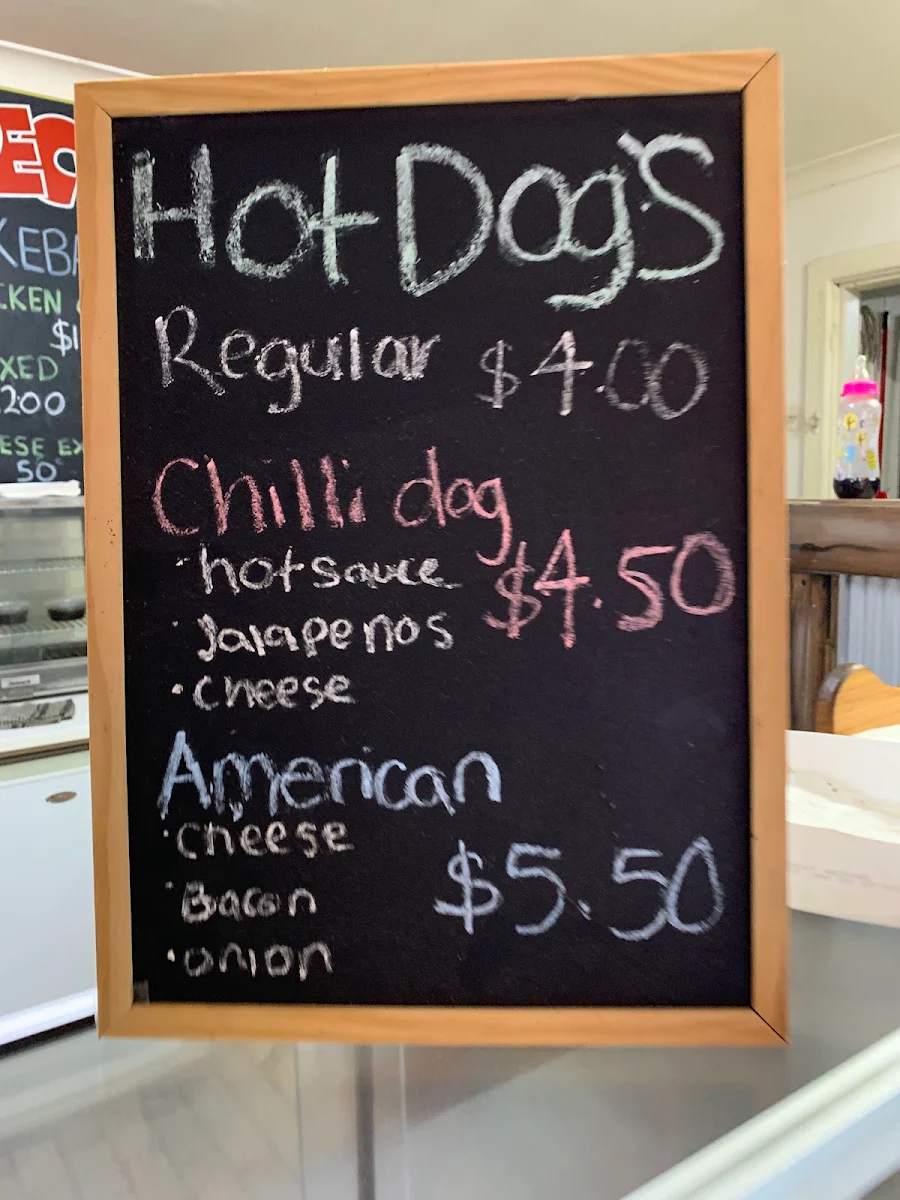 Hot Dog's
Regular $4.00
Chilli dog
· hot sauce $4.50
· Jalapenos
· cheese
American
· cheese
· Bacon $5.50
· onion
KEBA
CKEN
$1
XED
1200
ESE EX
50